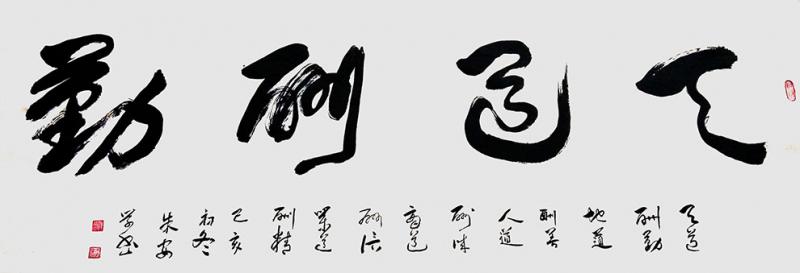 天道酬勤
天道
酬勤
地道
酬善
人道
酬诚
商道
酬信
業道
酬精
己亥
初冬
朱安